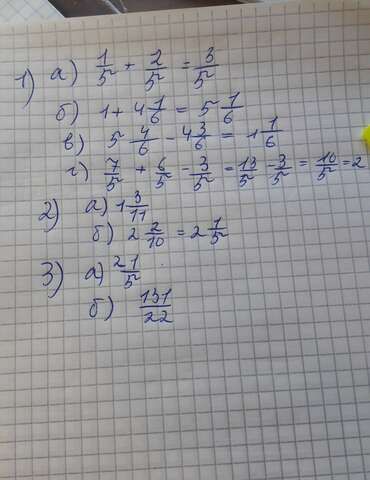 1) а) 1/5 + 2/5 = 3/5
б) 1 + 4 1/6 = 5 1/6
в) 5 4/6 - 4 3/6 = 1 1/6
г) 7/5 + 6/5 - 3/5 = 13/5 - 3/5 = 10/5 = 2
2) а) 1 3/11
б) 2 2/10 = 2 1/5
3) а) 2 1/5
б) 131/22